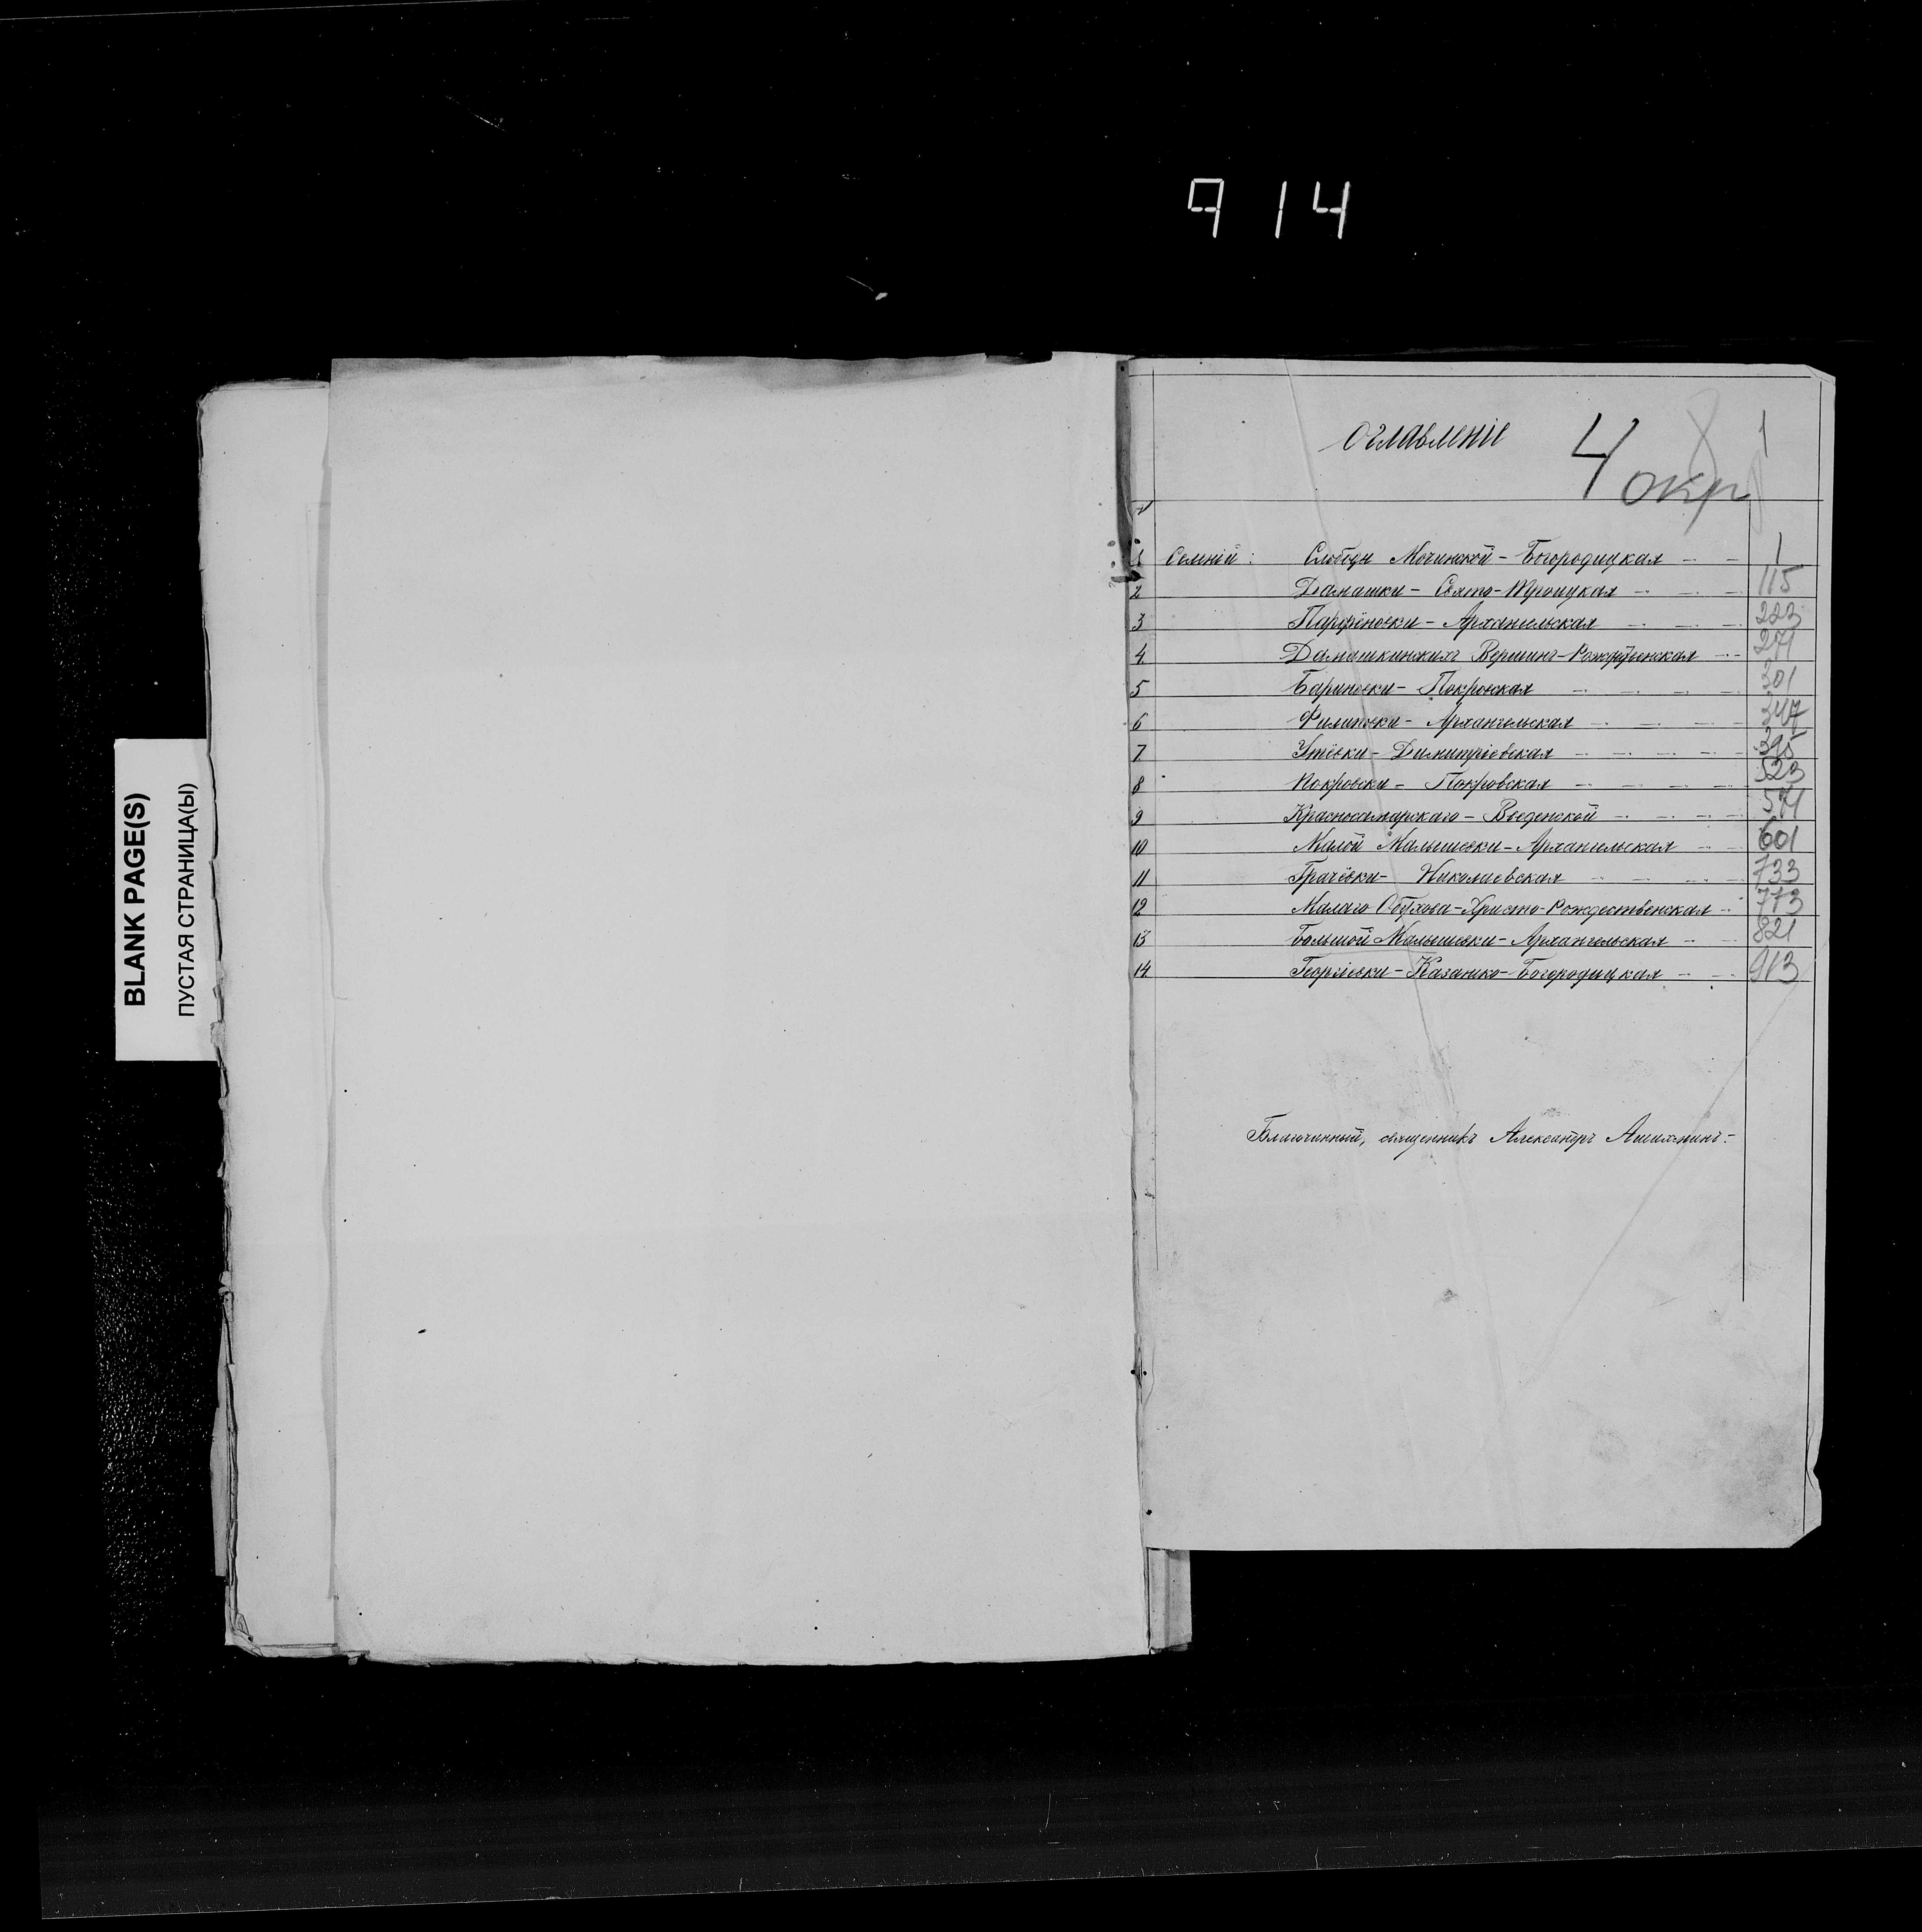 914
BLANK PAGE(S)
ПУСТАЯ СТРАНИЦА(Ы)
Оглавленіе
4 окр
1
1 Селеній: Слободы Мочинской - Богородицкая 1
2 Дамашки - Свято-Троицкая 115
3 Парфёновки - Архангельская 223
4 Дамашкинскихъ Вершинъ - Рождественская 271
5 Бариновки - Покровская 301
6 Филиповки - Архангельская 347
7 Утёвки - Димитріевская 395
8 Покровки - Покровская 523
9 Красносамарскаго - Введенской 571
10 Малой Малышевки - Архангельская 601
11 Грачёвки - Николаевская 733
12 Малаго Обухова - Христо-Рождественская 773
13 Большой Малышевки - Архангельская 821
14 Георгіевки - Казанско-Богородицкая 913
Благочинный, священникъ Александръ